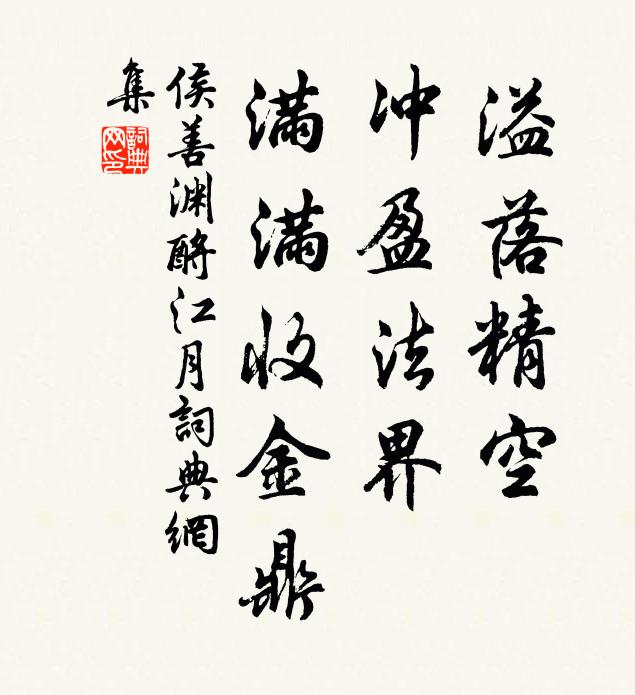 溢落精空
冲盈法界
满满收金鼎
侯善渊酹江月詞典網
集
詞典
网印